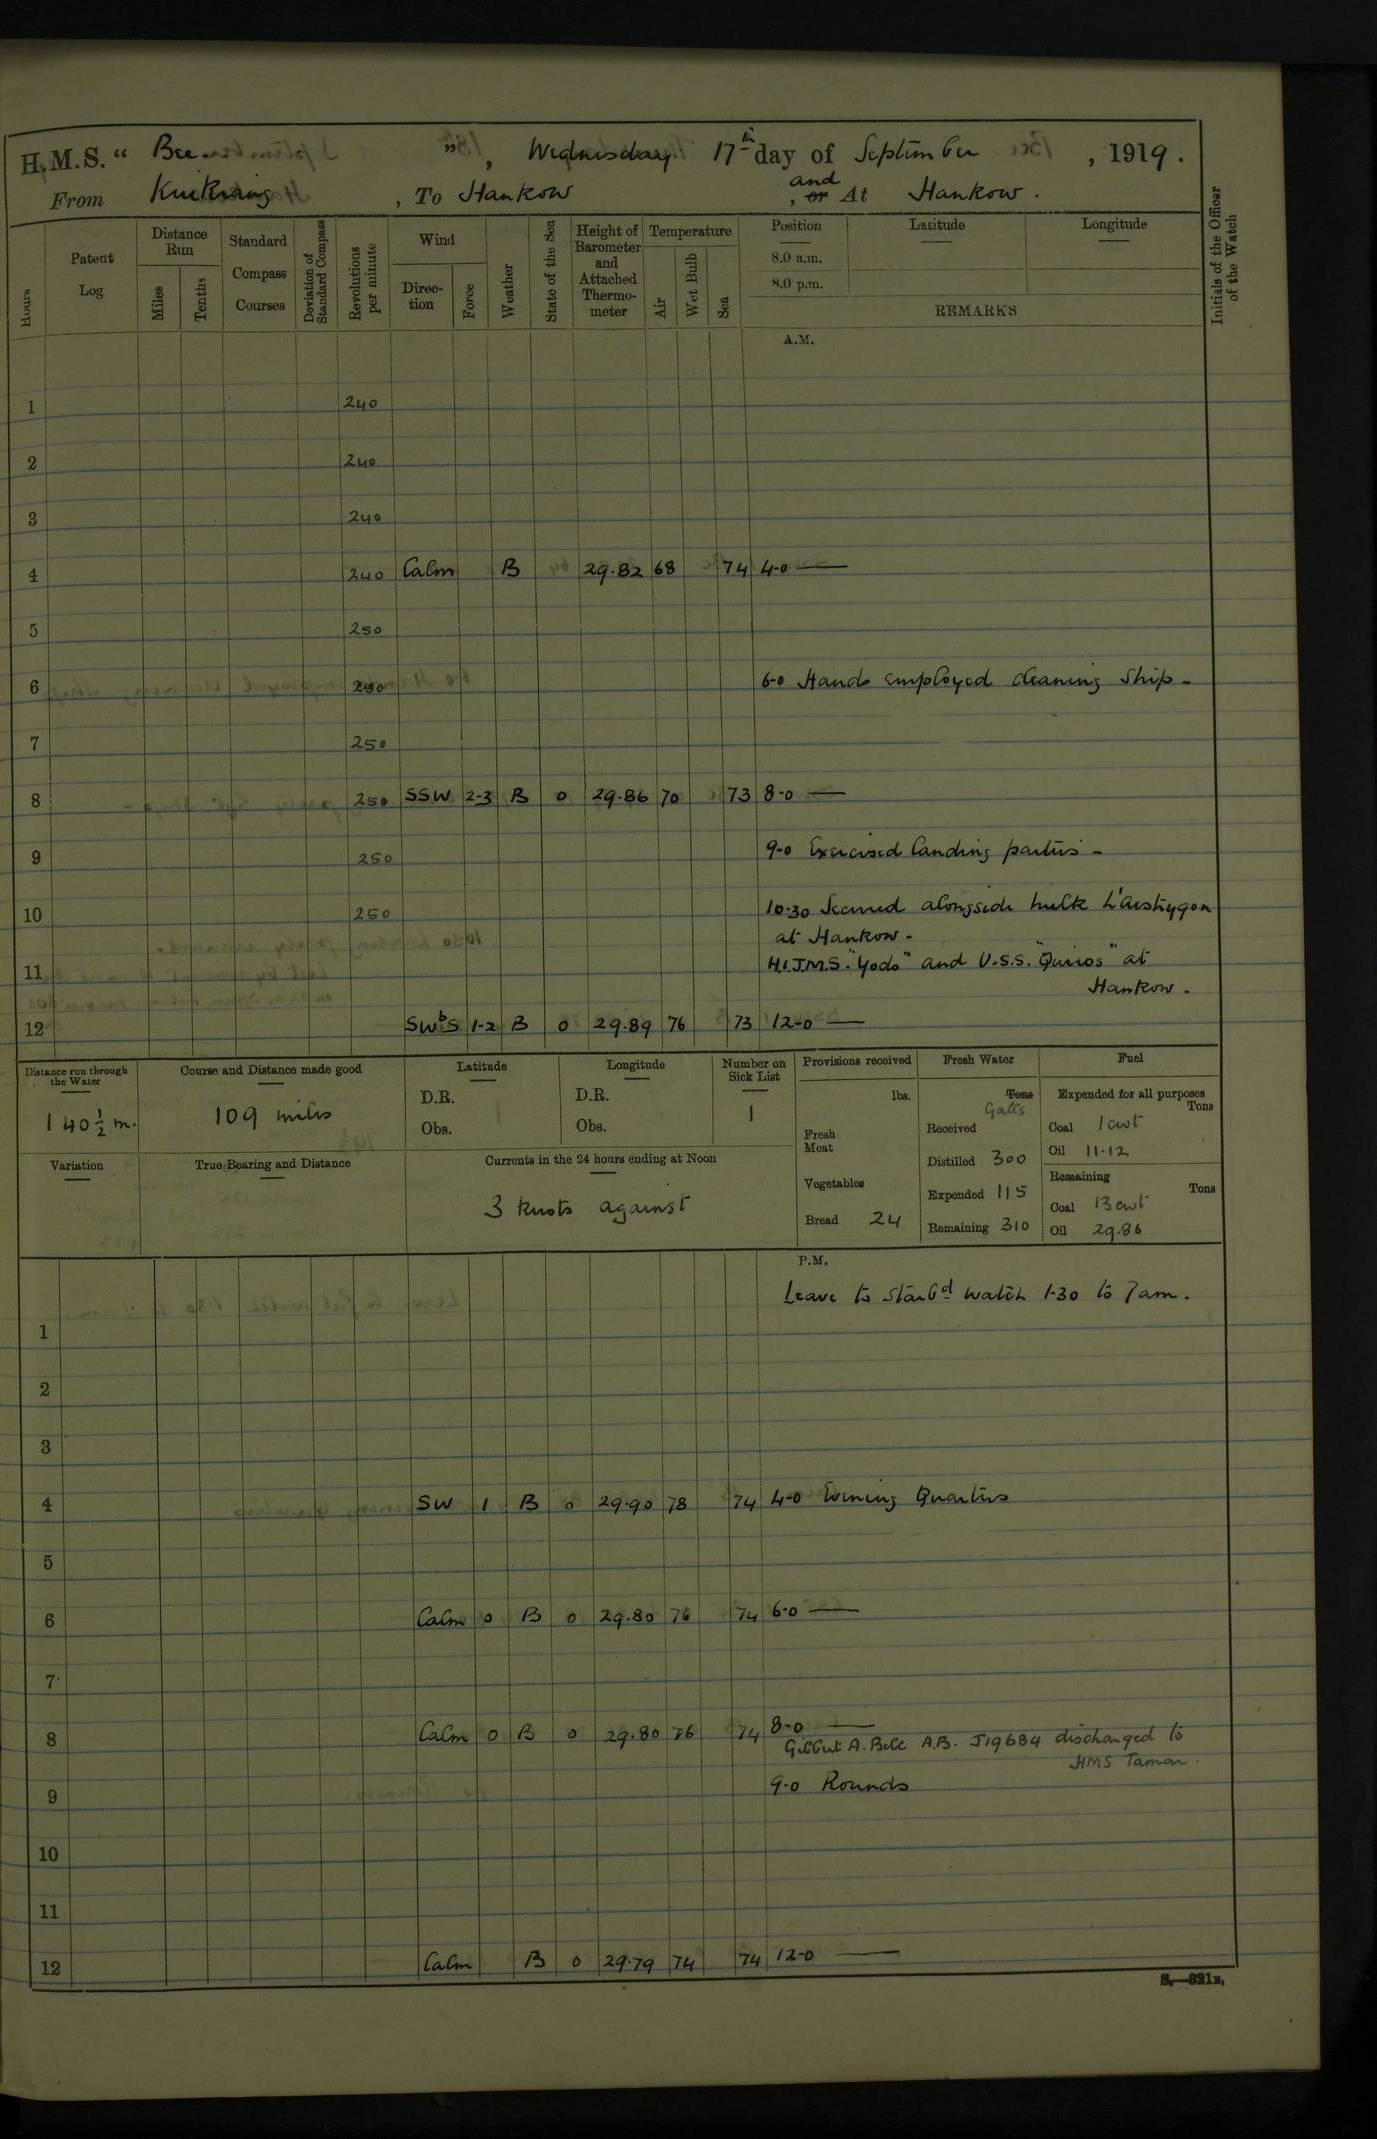 H.M.S. “ Bee ” , Wednesday 17th day of September , 1919 .
From Kiukiang , To Hankow , or and At Hankow .
Hours
Patent Log
Distance Run
Miles
Tenths
Standard Compass Courses
Deviation of Standard Compass
Revolutions per minute
Wind
Direc-tion
Force
Weather
State of the Sea
Height of Barometer and Attached Thermo-meter
Temperature
Air
Wet Bulb
Sea
Position
8.0 a.m.
8.0 p.m.
Latitude
Longitude
REMARKS
Initials of the Officer of the Watch
A.M.
1 240
2 240
3 240
4 240 Calm B 29.82 68 74 4-0 —
5 250
6 250 6-0 Hands employed cleaning ship -
7 250
8 250 SSW 2-3 B 0 29.86 70 73 8-0 —
9 250 9-0 Exercised landing parties -
10 250 10.30 Secured alongside hulk L'aestrygon
at Hankow -
11 H.I.J.M.S. "Yodo" and U.S.S. "Quiros" at
Hankow .
12 SWbS 1-2 B 0 29.89 76 73 12-0 —
Distance run through the Water
140½ m.
Course and Distance made good
109 miles
Latitude
D.R.
Obs.
Longitude
D.R.
Obs.
Number on Sick List
1
Variation
True Bearing and Distance
Currents in the 24 hours ending at Noon
3 knots against
Provisions received
lbs.
Fresh Meat
Vegetables
Bread 24
Fresh Water
Tons Galls
Received
Distilled 300
Expended 115
Remaining 310
Fuel
Expended for all purposes
Tons
Coal 1 cwt
Oil 11.12
Remaining
Tons
Coal 13 cwt
Oil 29.86
P.M.
Leave to starbd watch 1-30 to 7am.
1
2
3
4 SW 1 B 0 29.90 78 74 4-0 Evening Quarters
5
6 Calm 0 B 0 29.80 76 74 6-0 —
7
8 Calm 0 B 0 29.80 76 74 8-0 —
Gilbert A. Bell A.B. J19684 discharged to
HMS Tamar.
9 9-0 Rounds
10
11
12 Calm B 0 29.79 74 74 12-0 —
S.—321B.